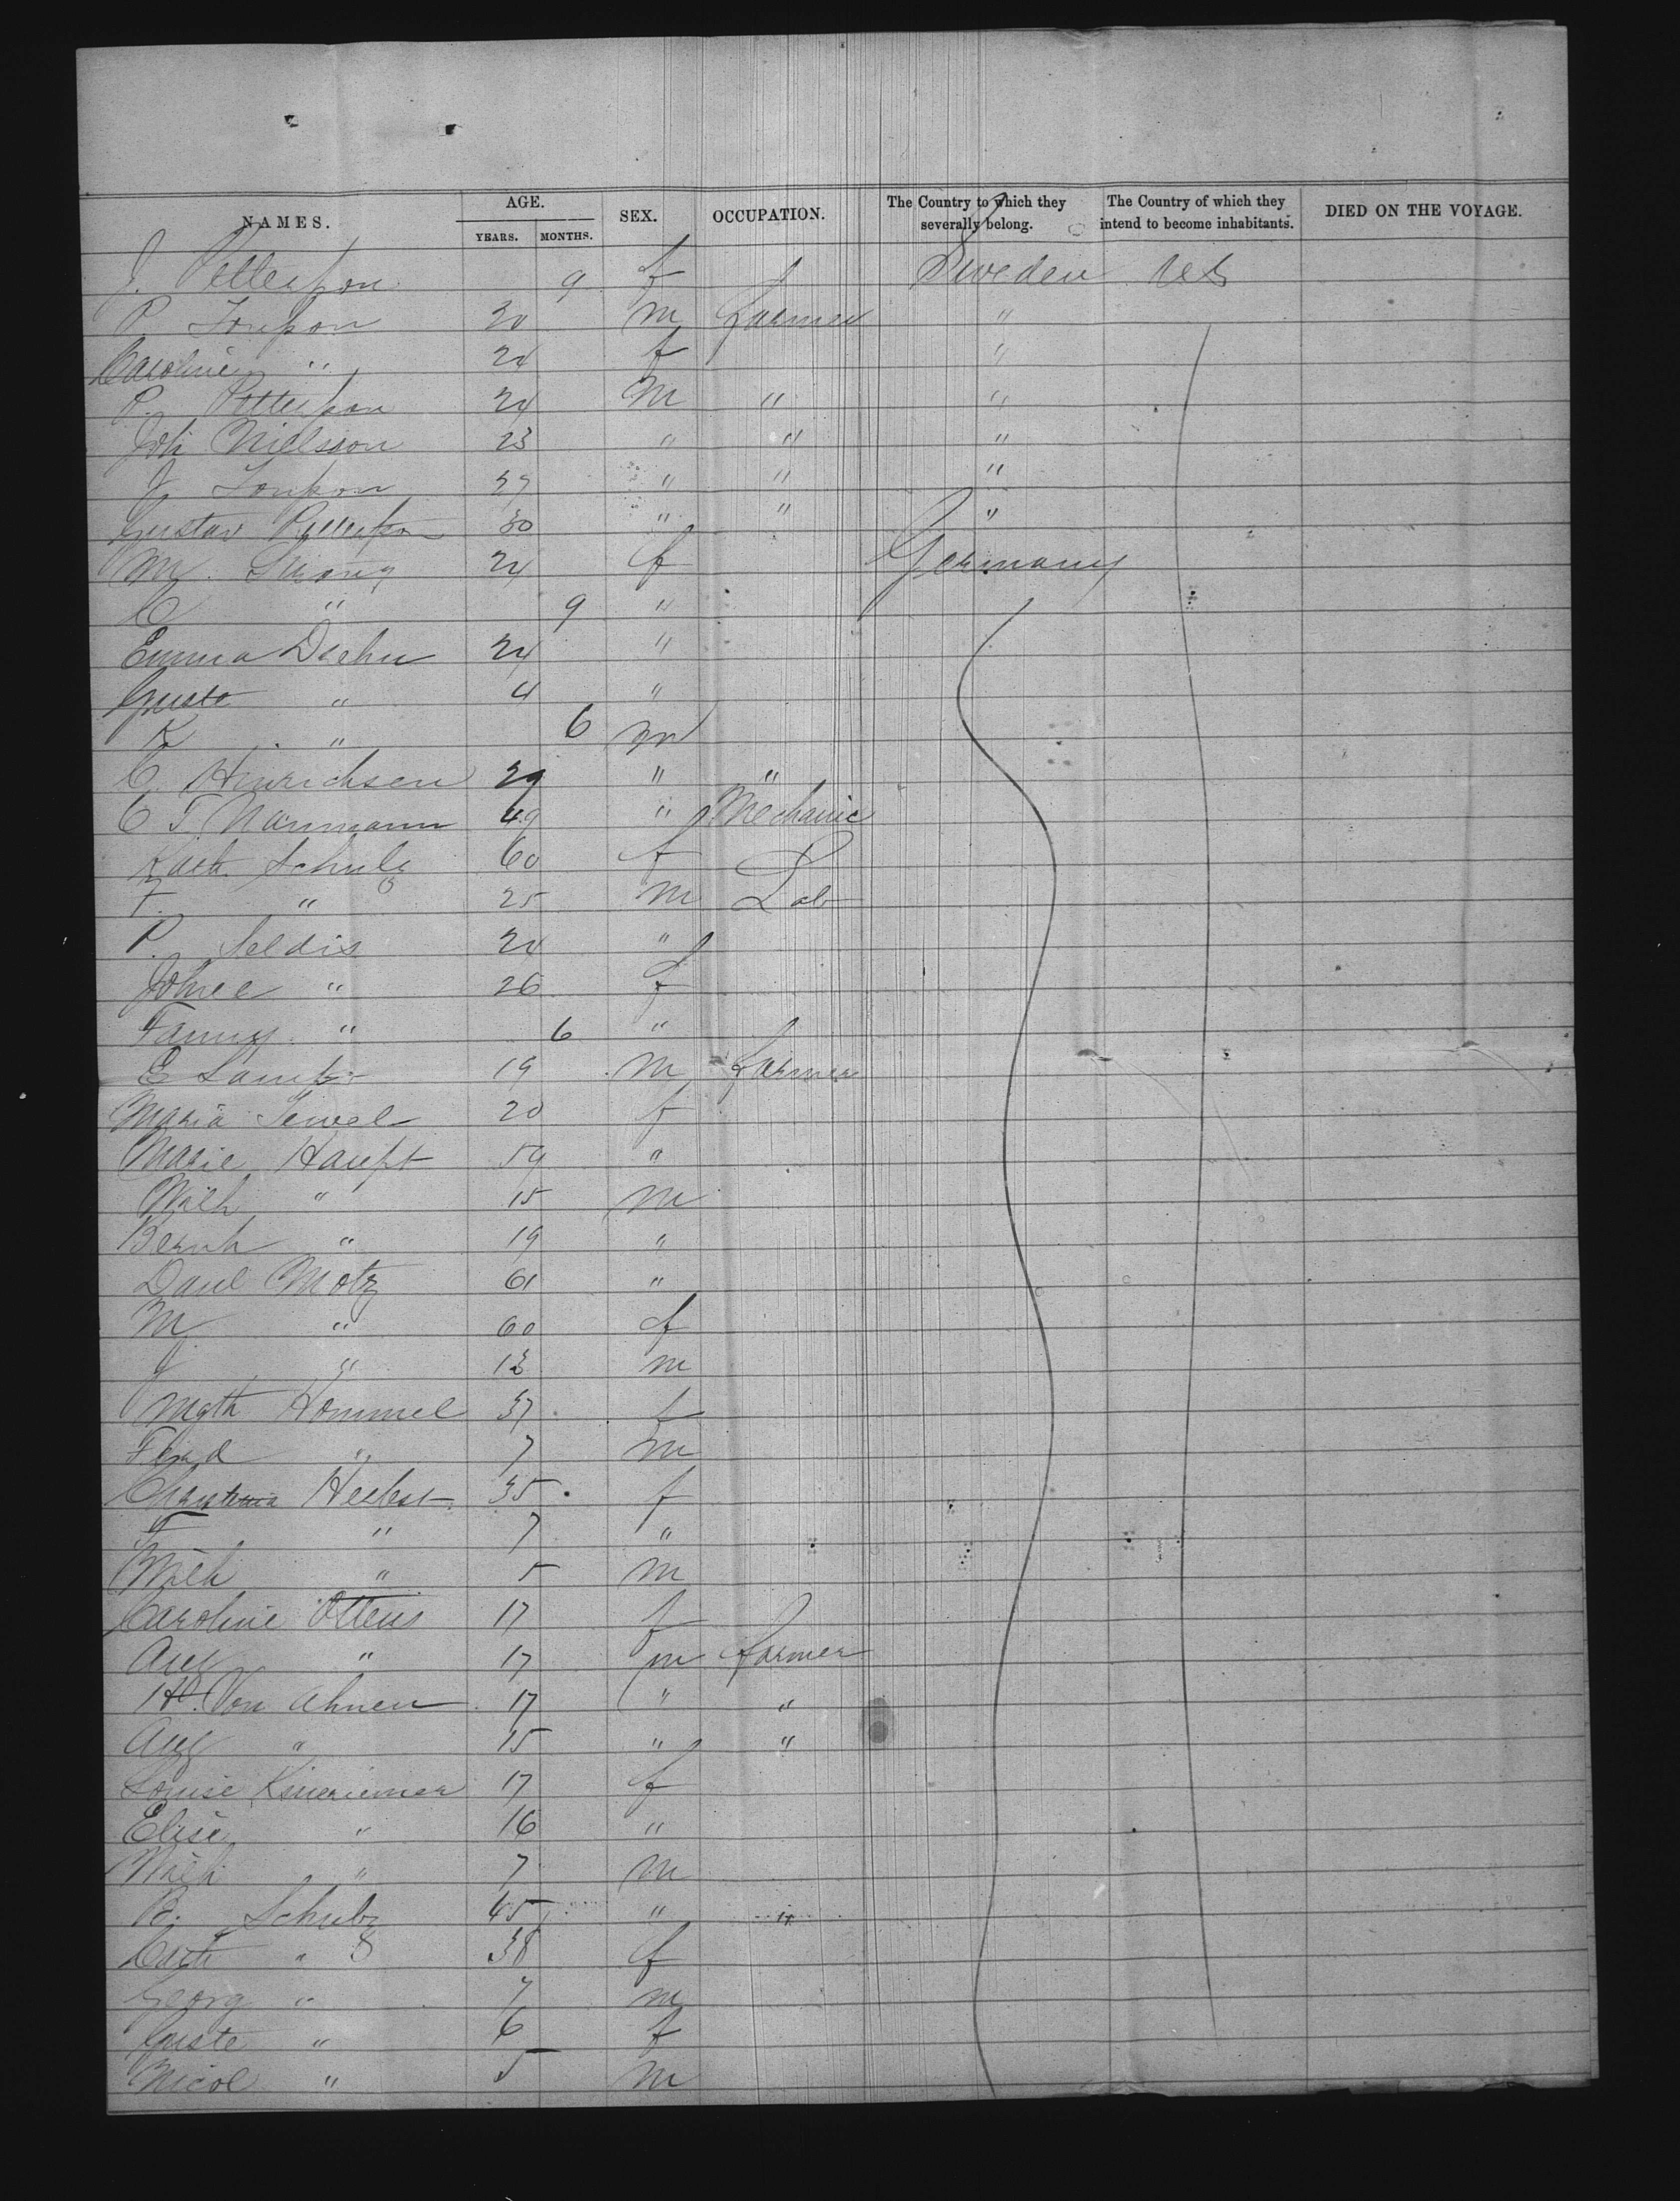 NAMES. AGE. YEARS. MONTHS. SEX. OCCUPATION. The Country to which they severally belong. The Country of which they intend to become inhabitants. DIED ON THE VOYAGE.
J. Pettersson 9 f Sweden US
P. 30 m Farmer "
Caroline " 24 f "
P. Pettersson 24 m " "
Joh Nielsson 23 " " "
J. 27 " " "
Gustav Pettersson 30 " " "
M. 24 f Germany
C " 9 "
Emma Daehn 24 "
Guste " 4 "
K " 6 m
C. Hinrichsen 29 " "
C T Naumann 49 " Mechanic
Kath. Schulz 60 f
F. " 25 m Lab
P. Seldis 24 "
" 26 f
Fanny " 6 "
E 19 m Farmer
Maria 20 f
Marie Haupt 59 "
Wilh " 15 m
Bernh " 19 "
Danl Motz 61 "
M " 60 f
J " 13 m
Math Hommel 37 f
Ferd " 7 m
Herbst 35 f
F " 7 "
Wilh " 5 m
Caroline Ottens 17 f
Aug " 17 m Farmer
Hd. Von Ahnen 17 " "
Aug " 15 " "
Louise 17 f
Elise " 16 "
Wilh " 7 m
B. Schulz 45 " "
Cath " 38 f
Georg " 7 m
Guste " 6 f
Nicol " 5 m